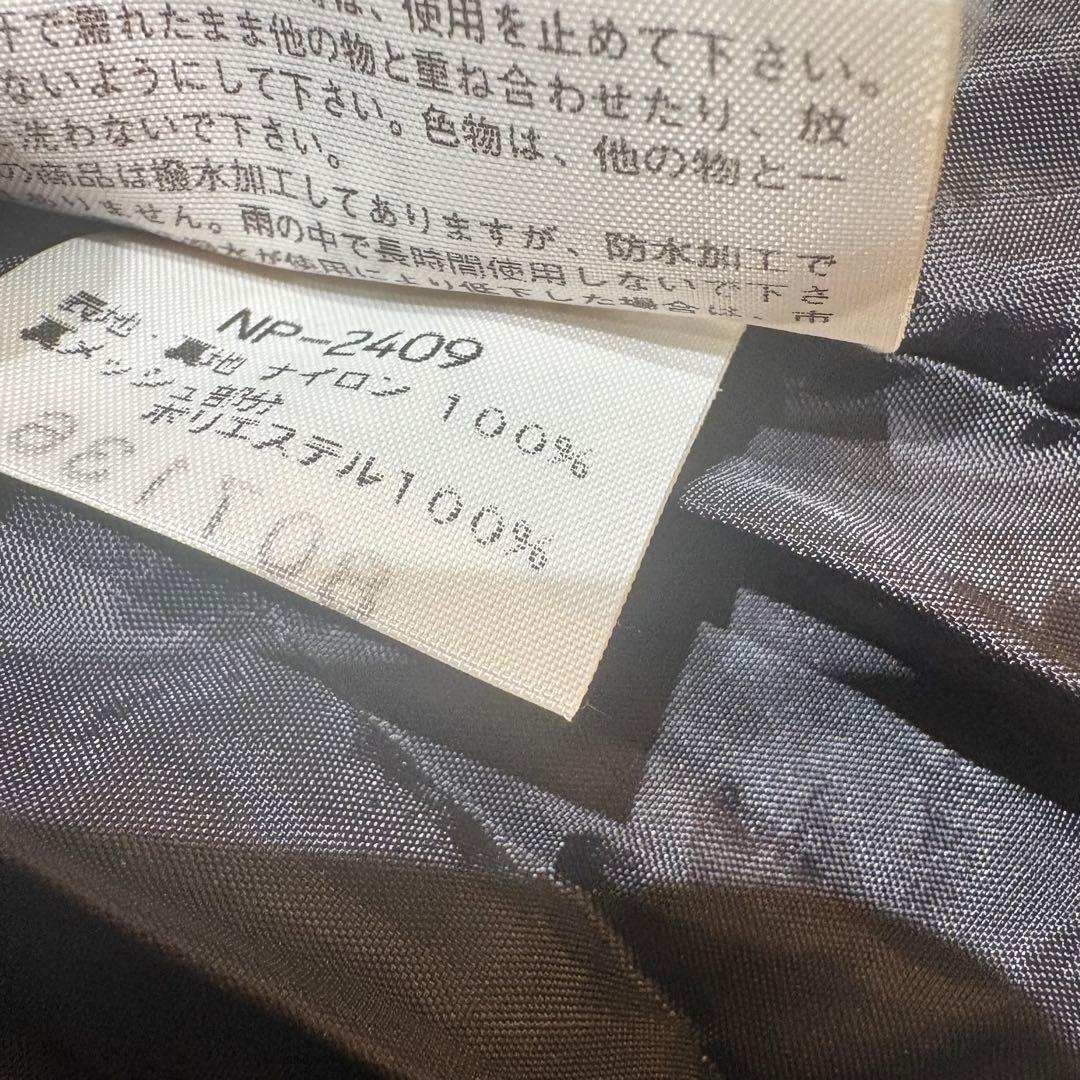 は、使用を止めて下さい。
で濡れたまま他の物と重ね合わせたり、放
ないようにして下さい。色物は、他の物と一
洗わないで下さい。
の商品は撥水加工してありますが、防水加工で
いません。雨の中で長時間使用しないで下さ
使用により低下した場合は、市
NP-2409
表地・裏地 ナイロン 100%
裏メッシュ部分
ポリエステル100%